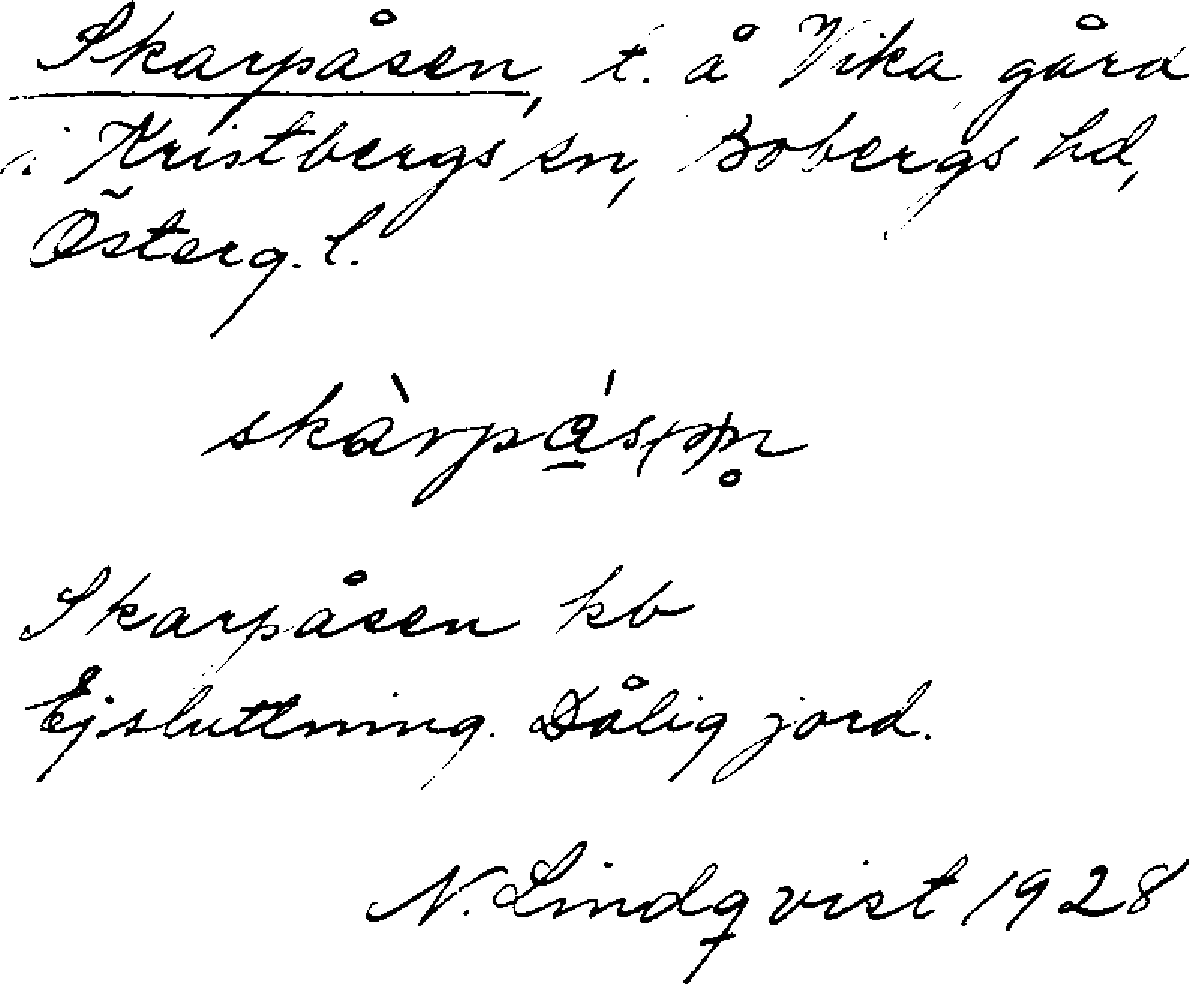 Skarpåsen, t. å Vika gård
i Kristbergs sn, Bobergs hd,
Österg. l.
skàrpá̱s(ə)n̥
Skarpåsen kb
Ej sluttning. Dålig jord.
N. Lindqvist 1928